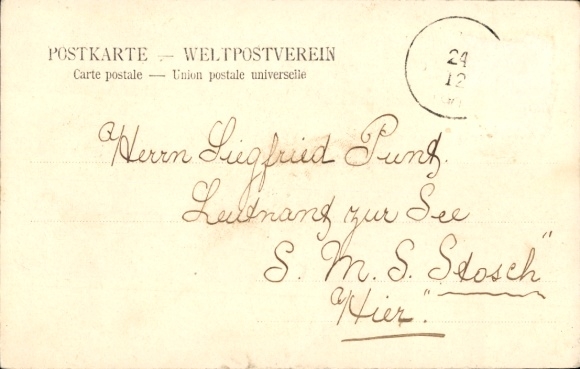 POSTKARTE — WELTPOSTVEREIN
Carte postale — Union postale universelle
24
12
Herrn Siegfried Punt.
Leutnant zur See
S. M. S. Stosch"
Hier."